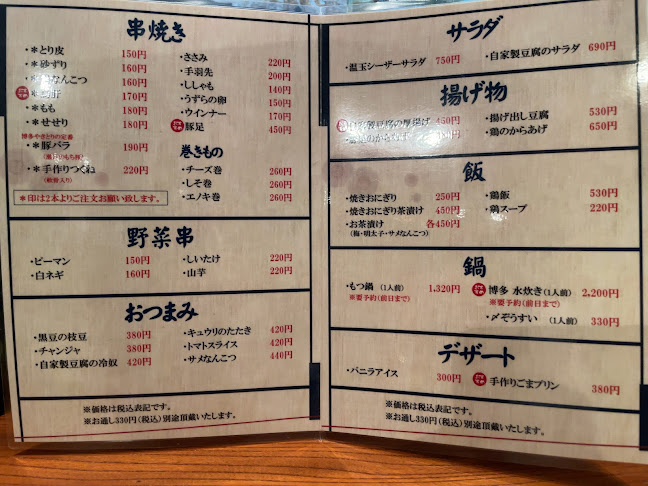 串焼き
・＊とり皮 150円
・＊砂ずり 160円
なんこつ 160円
肝 170円
・＊もも 180円
・＊せせり 180円
博多やきとりの定番
・＊豚バラ 190円
・＊手作りつくね 220円
(軟骨入り)
＊印は2本よりご注文お願い致します。
・ささみ 220円
・手羽先 200円
・ししゃも 140円
・うずらの卵 150円
・ウインナー 170円
豚足 450円
巻きもの
・チーズ巻 260円
・しそ巻 260円
・エノキ巻 260円
野菜串
・ピーマン 150円
・白ネギ 160円
・しいたけ 220円
・山芋 220円
おつまみ
・黒豆の枝豆 380円
・チャンジャ 380円
・自家製豆腐の冷奴 420円
・キュウリのたたき 420円
・トマトスライス 420円
・サメなんこつ 440円
※価格は税込表記です。
※お通し330円(税込)別途頂戴いたします。
サラダ
・温玉シーザーサラダ 750円
・自家製豆腐のサラダ 690円
揚げ物
製豆腐の厚揚げ 450円
のから 450円
・揚げ出し豆腐 530円
・鶏のからあげ 650円
飯
・焼きおにぎり 250円
・焼きおにぎり茶漬け 450円
・お茶漬け 各450円
(梅・明太子・サメなんこつ)
・鶏飯 530円
・鶏スープ 220円
鍋
・もつ鍋 (1人前) 1,320円
※要予約(前日まで)
博多 水炊き(1人前) 2,200円
※要予約(前日まで)
・〆ぞうすい (1人前) 330円
デザート
・バニラアイス 300円
手作りごまプリン 380円
※価格は税込表記です。
※お通し330円(税込)別途頂戴いたします。